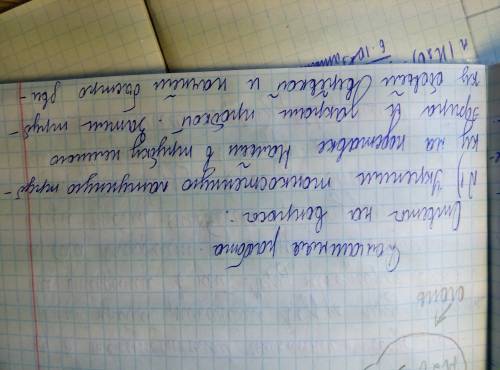 Домашняя работа
Ответь на вопросы:
№1 Укрепим тонкостенную латунную труб-
ку на подставке. Нальём в трубку немного
эфира и закроем пробкой. Затем труб-
ку обовьём верёвкой и начнём быстро дви-
n (H₂O)
огонь